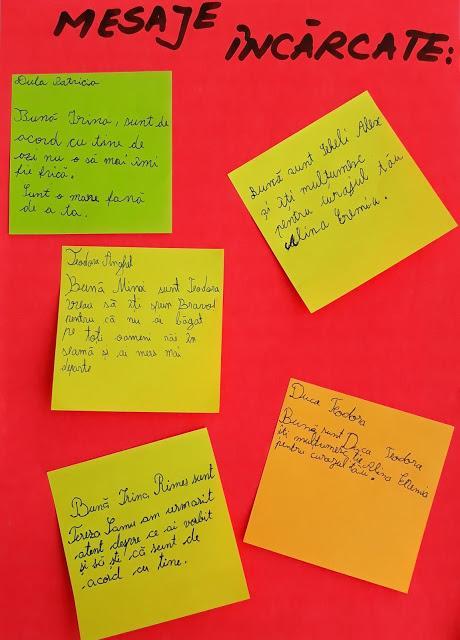 MESAJE
ÎNCĂRCATE:
Dula Patricia
Bună Irina, sunt de
acord cu tine de
azi nu o să mai îmi
fie frică.
Sunt o mare fană
de a ta.
Bună sunt Alex
și îți mulțumesc
pentru curajul tău
Alina Eremia.
Teodora Anghel
Bună Mina sunt Teodora
vreau să îți spun Bravo!
pentru că nu ai băgat
pe toți oameni răi în
seamă și ai mers mai
departe
Duca Teodora
Bună sunt Duca Teodora
îți mulțumesc ție Alina Eremia
pentru curajul tău.
Bună Irina Rimes sunt
Tereza am urmarit
atent despre ce ai vorbit
și să ști că sunt de
acord cu tine.